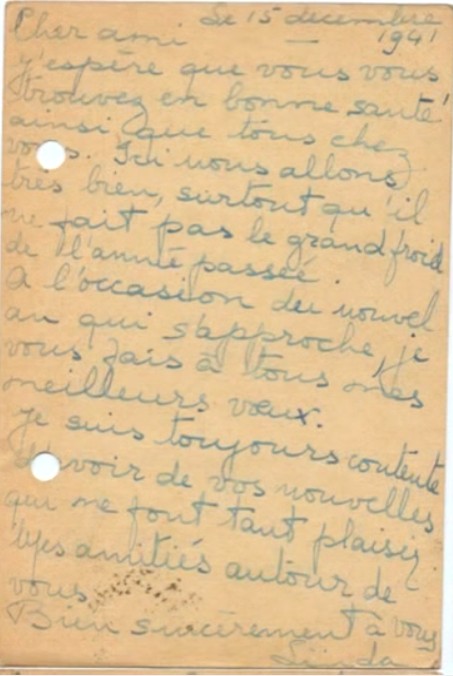 Le 15 decembre
Cher ami — 1941
J'espère que vous vous
trouvez en bonne santé
ainsi que tous chez
vous. Ici nous allons
très bien, surtout qu'il
ne fait pas le grand froid
de l'année passée.
A l'occasion du nouvel
an qui s'approche, je
vous fais à tous mes
meilleurs vœux.
Je suis toujours contente
d'avoir de vos nouvelles
qui me font tant plaisir.
Mes amitiés autour de
vous
Bien sincèrement à vous
Linda